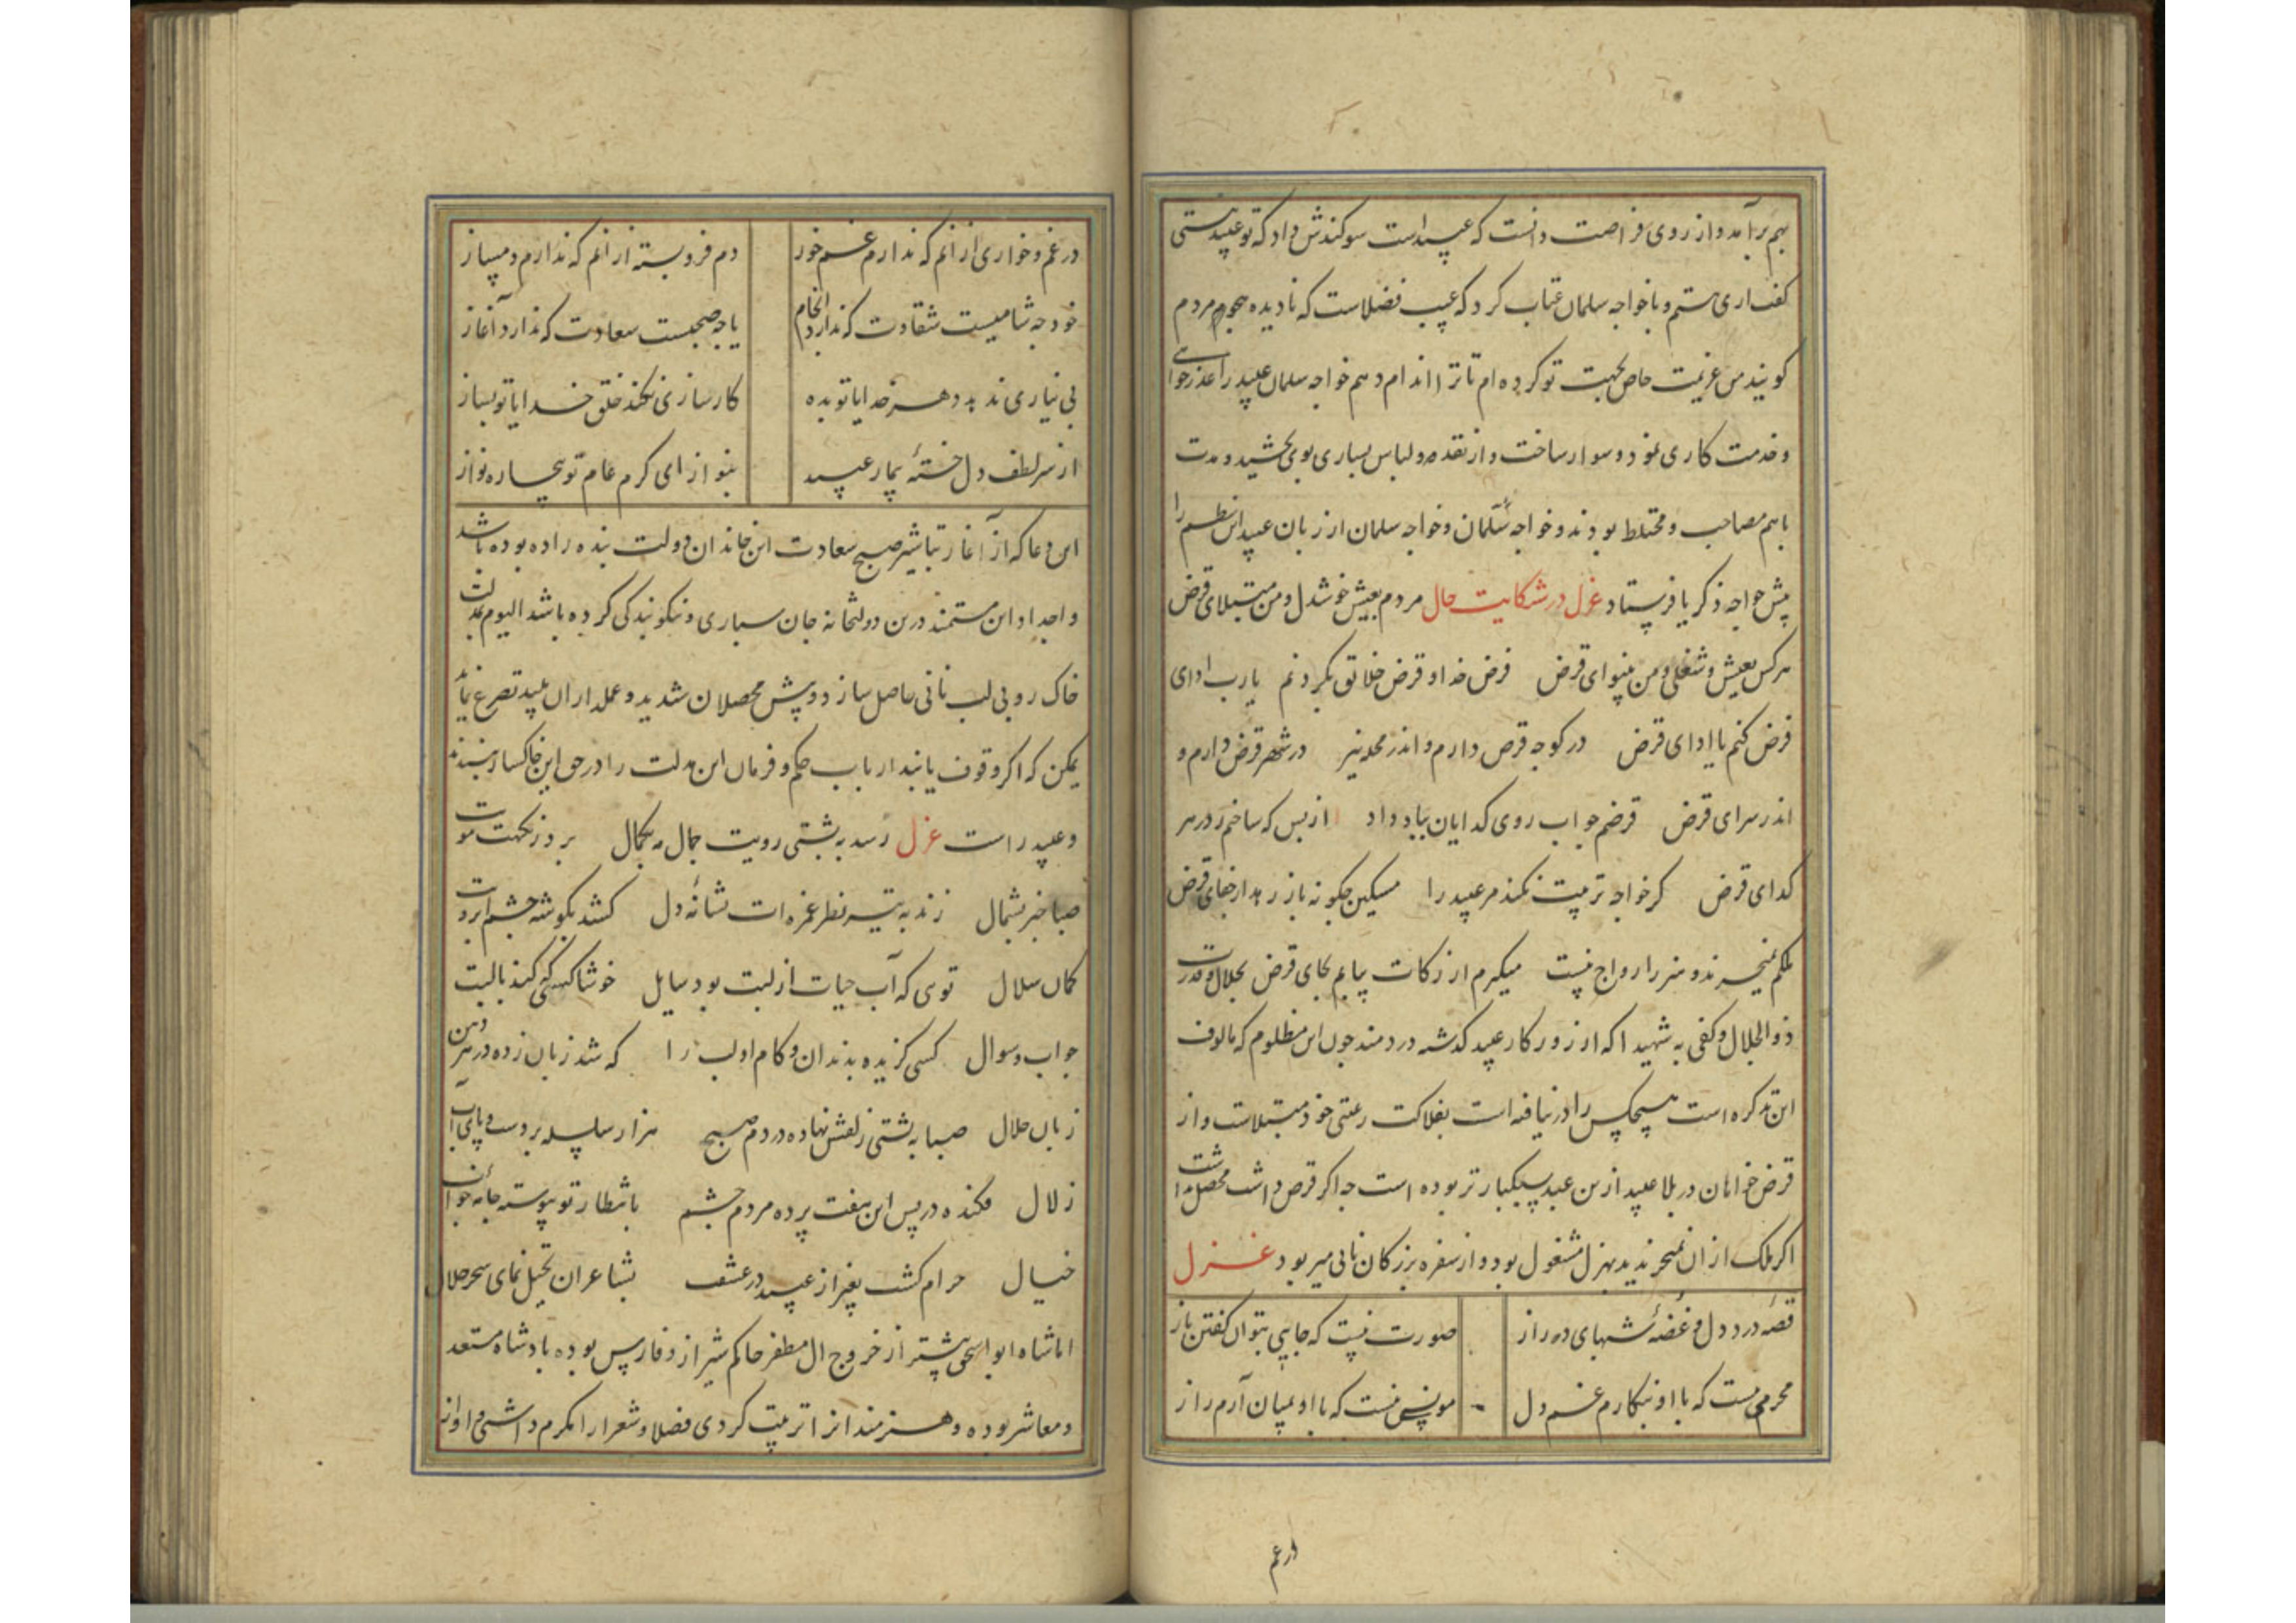 بهم برآمد و از روی فراصت دانست که عبید است سوکندش داد که تو عبید نیستی
کفت اری هستم و با خواجه سلمان عتاب کرد که عیب فضلاست که نادیده هجو مردم
کویند من عزیمت خاص بجهت تو کرده ام تا ترا اندام دهم خواجه سلمان عبید را عذرخواهی
و خدمت کاری نمود و سوار ساخت و از نقد و لباس بسیاری بوی بخشید و مدت
باهم مصاحب و مختلط بودند و خواجه سلمان و خواجه سلمان از زبان عبید این نظم را
پیش خواجه ذکریا فرستاد غزل در شکایت حال مردم بعیش خوشدل و من مبتلای قرض
هر کس بعیش و شغلی و من بینوای قرض فرض خدا و قرض خلائق بکردنم یارب ادای
فرض کنم یا ادای قرض در کوچه قرض دارم و اندر محله نیز در شهر قرض دارم و
اندر سرای قرض قرضم جو اب روی کدایان بباد داد از بس که ساختم ز در هر
کدای قرض کر خواجه تربیت نکند مر عبید را مسکین چکونه باز رهد از جفای قرض
ملکم نمیخرند و هنر را رواج نیست میکیرم از زکات بیابم بجای قرض بجلال و قدرت
ذوالجلال و کفی به شهیدا که از روزکار عبید کذشه دردمند چون این مظلوم که مالوف
این تذکره است هیچکس را در نیافته است بفلاکت رعیتی خود مبتلاست و از
قرض خواهان در بلا عبید از من عبد سبکبار تر بوده است چه اکر قرض داشت محصل نداشت
اکر ملک از ان نمیخریدند بهزل مشغول بود و از سفره بزرکان نانی میربود غزل
قصه درد دل و غصه شبهای دراز صورت نیست که جایی بتوان کفتن باز
محرمی نیست که با او بنکارم غم دل مونسی نیست که با او بمیان آرم راز
در غم
در غم و خواری از انم که ندارم غم خور دم فرو بسته از انم که ندارم دمساز
خود چه شامیست شقاوت که ندارد انجام یا چه صبحیست سعادت که ندارد آغاز
بی نیازی ندهد دهر خدایا تو بده کار سازی نکند خلق خدایا تو بساز
از سر لطف دل خسته بیمار عبید بنواز ای کرم عام تو بیچاره نواز
این دعا که از آغاز تباشیر صبح سعادت این خاندان دولت بنده زاده بوده باشد
و اجداد این مستمند درین دولتخانه جان سپاری و نیکو بندکی کرده باشد الیوم بمذلت
خاک روبی لب نانی حاصل سازد و پیش محصلان شدید و عملداران پلید تضرع نماید
یمکن که اکر وقوف یابند ارباب حکم و فرمان این مذلت را در حق این خاکسار نپسندند
و عبید راست غزل زسد به پشتی رویت جمال مه بکمال برد ز نکهت مویت
صبا خبر بشمال زند به تیر نظر غمزه ات نشانه دل کشد بکوشه چشم ابرویت
کمان هلال توی که آب حیات از لبت بود سایل خوشا کسی که کند با لبت
جواب و سوال کسی کزیده بدندان و کام او لب را که شد زبان زده در هر دهن
زبان حلال صبا به پشتی زلفش نهاده در دم صبح هزار سلسله بر دست و پای آب
زلال فکنده در پس این هفت پرده مردم چشم بانتظار تو پیوسته جامه خواب
خیال حرام کشت بغیر از عبید در عشقت بشاعران تخیل نمای سحر حلال
اما شاه ابو اسحق پیشتر از خروج ال مظفر حاکم شیراز و فارس بوده پادشاه مستعد
و معاشر بوده و هنرمندانرا تربیت کردی فضلا و شعرا را مکرم داشتی و او از